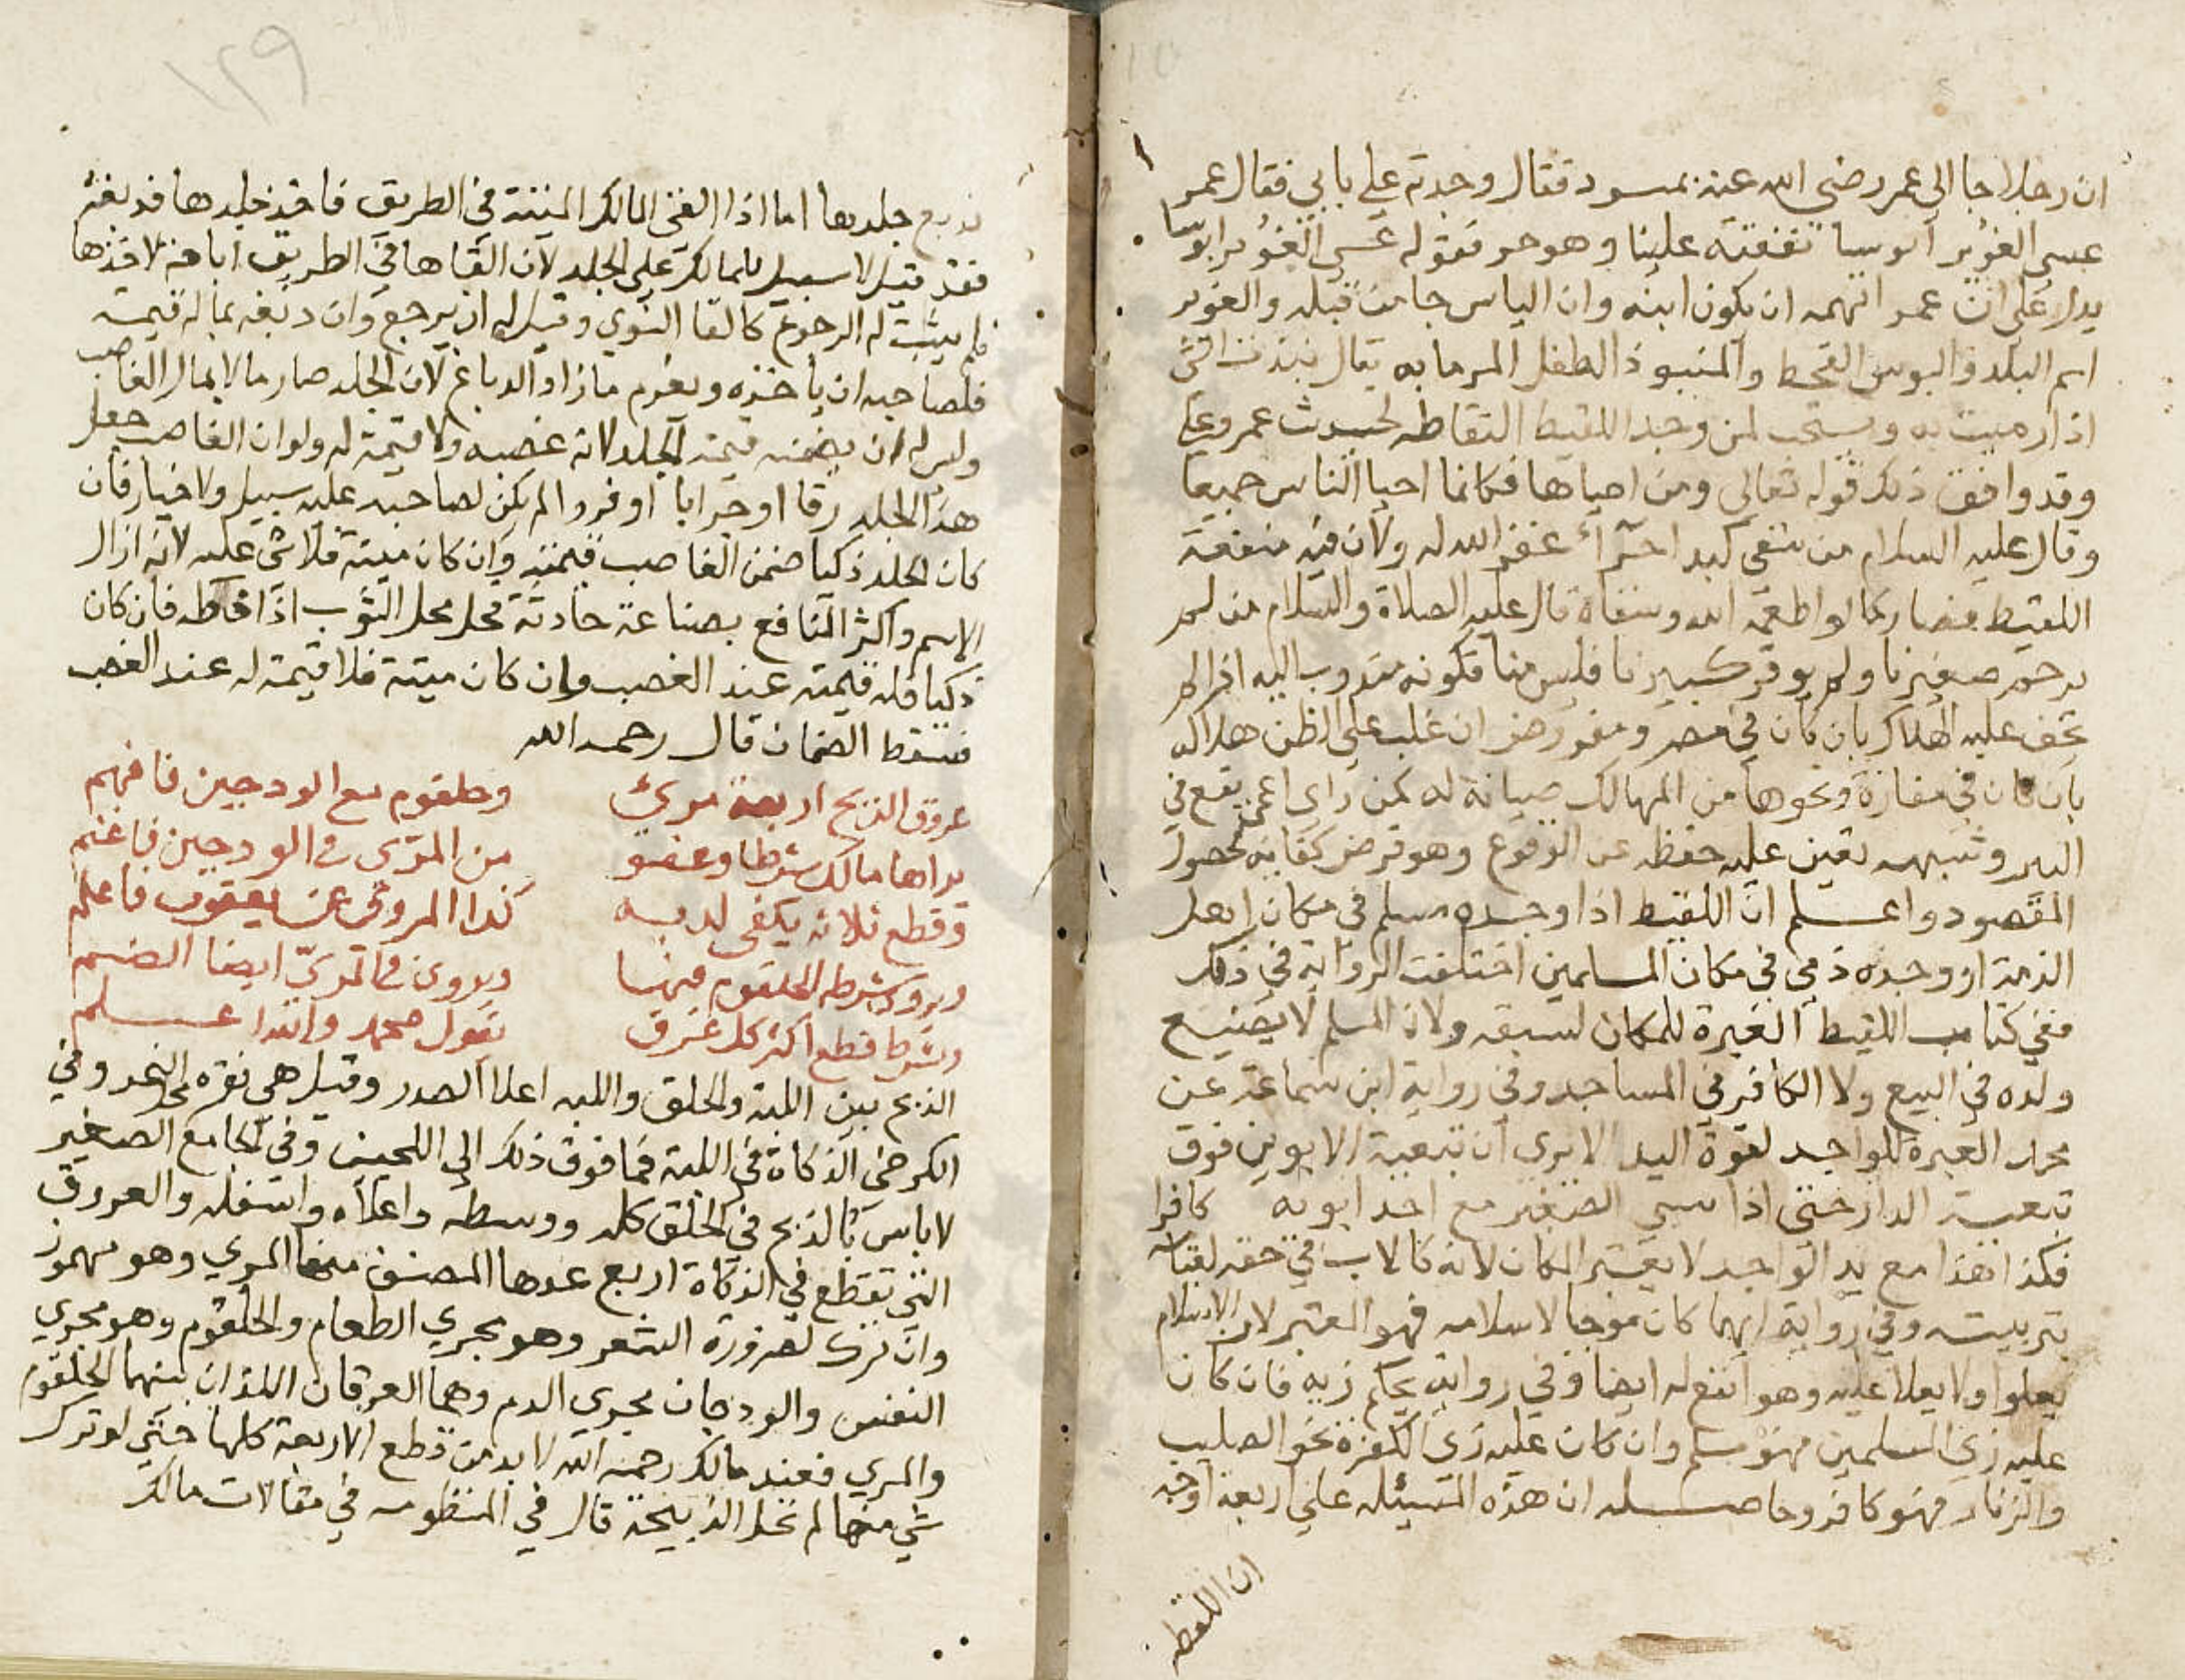 ان رجلا جا الى عمر رضي الله عنه بمنبوذ فقال وجدته على بابي فقال عمر
عسى الغوير ابوسا نفقته علينا وهو حر فقوله عسى الغوير ابوسا
يدل على ان عمر اتهمه ان يكون ابنه وان الباس جا من قبله والغوير
اسم البلد والبوس القحط والمنبوذ الطفل المرما به يقال نبذت الشي
اذا رميت به ويستحب لمن وجد اللقيط التقاطه لحديث عمر وعلي
وقد وافق ذلك قوله تعالى ومن احياها فكانما احيا الناس جميعا
وقال عليه السلام من سقى كبدا حراء غفر الله له ولان فيه منفعة
اللقيط فصار كما لو اطعمه الله وسقاه قال عليه الصلاة والسلام من لم
يرحم صغيرنا ولم يوقر كبيرنا فليس منا فكونه مندوب اليه اذا لم
يخف عليه الهلاك بان كان في مصر ومفروض ان غلب على الظن هلاكه
بان كان في مفازة ونحوها من المهالك صيانة له كمن راى اعمى يقع في
البير وشبهه تعين عليه حفظه عن الوقوع وهو فرض كفاية لحصول
المقصود واعلم ان اللقيط اذا وجده مسلم في مكان اهل
الذمة او وجده ذمي في مكان المسلمين اختلفت الرواية في ذلك
ففي كتاب اللقيط العبرة للمكان لسبقه ولان المسلم لا يضيع
ولده في البيع ولا الكافر في المساجد وفي رواية ابن سماعة عن
محمد العبرة للواجد لقوة اليد الا يرى ان تبعية الابوين فوق
تبعية الدار حتى اذا سبي الصغير مع احد ابويه كافرا
فكذا هذا مع يد الواجد لا يعتبر المكان لانه كالاب في حقه لقيامه
بتربيته وفي رواية ايهما كان موجبا لاسلامه فهو المعتبر لان الاسلام
يعلوا ولا يعلا عليه وهو انفع له ايضا وفي رواية يحكم زيه فان كان
عليه زي المسلمين فهو مسلم وان كان عليه زي الكفرة نحو الصليب
والزنار فهو كافر وحاصله ان هذه المسئله على اربعة اوجه
ان اللقطه
١٢٩
يدبع جلدها اما اذا القى المالك الميتة في الطريق فاخذ جلدها فدبغه
فقد قيل لا سبيل للمالك على الجلد لان القاها في الطريق اباحة لاخذها
فلم يثبت له الرجوع كالقا النوي وقيل له ان يرجع وان دبغه بما له قيمة
فلصاحبه ان ياخذه ويغرم ما زاد الدباغ لان الجلد صار مالا بمال الغاصب
وليس له ان يضمنه قيمة الجلد لانه غصبه ولا قيمة له ولو ان الغاصب جعل
هذا الجلد زقا او جرابا او فروا لم يكن لصاحبه عليه سبيل ولا خيار فان
كان الجلد ذكيا ضمن الغاصب قيمته وان كان ميتة فلا شي عليه لانه ازال
الاسم واكثر المنافع بصناعة حادثة فحل محل الثوب اذا خاطه فان كان
ذكيا فله قيمته عند الغصب وان كان ميتة فلا قيمة له عند الغصب
فسقط الضمان قال رحمه الله
عروق الذبح اربعة مريء وحلقوم مع الودجين فافهم
يراها مالك شرطا وعفو من المرى في الودجين فاغنم
وقطع ثلاثة يكفى لديه كذا المروى عن يعقوب فاعلم
ويروى شرطه الحلقوم فيها ويروى في المريّ ايضا الضم
وشرط قطع اكثر كل عرق بقول محمد والله اعلم
الذبح بين اللبة والحلق واللبه اعلا الصدر وقيل هي نقرة النحر وفي
الكرخي الذكاة في اللبة فما فوق ذلك الى اللحيين وفي الجامع الصغير
لا باس بالذبح في الحلق كله ووسطه واعلاه واسفله والعروق
التي تقطع في الذكاة اربع عدها المصنف منها المري وهو مهموز
وان ترك لضرورة الشعر وهو مجرى الطعام والحلقوم وهو مجري
النفس والودجان مجري الدم وهما العرقان اللذان بينهما الحلقوم
والمري فعند مالك رحمه الله لا بد من قطع الاربعة كلها حتى لو ترك
شي منها لم تحل الذبيحة قال في المنظومه في مقالات مالك